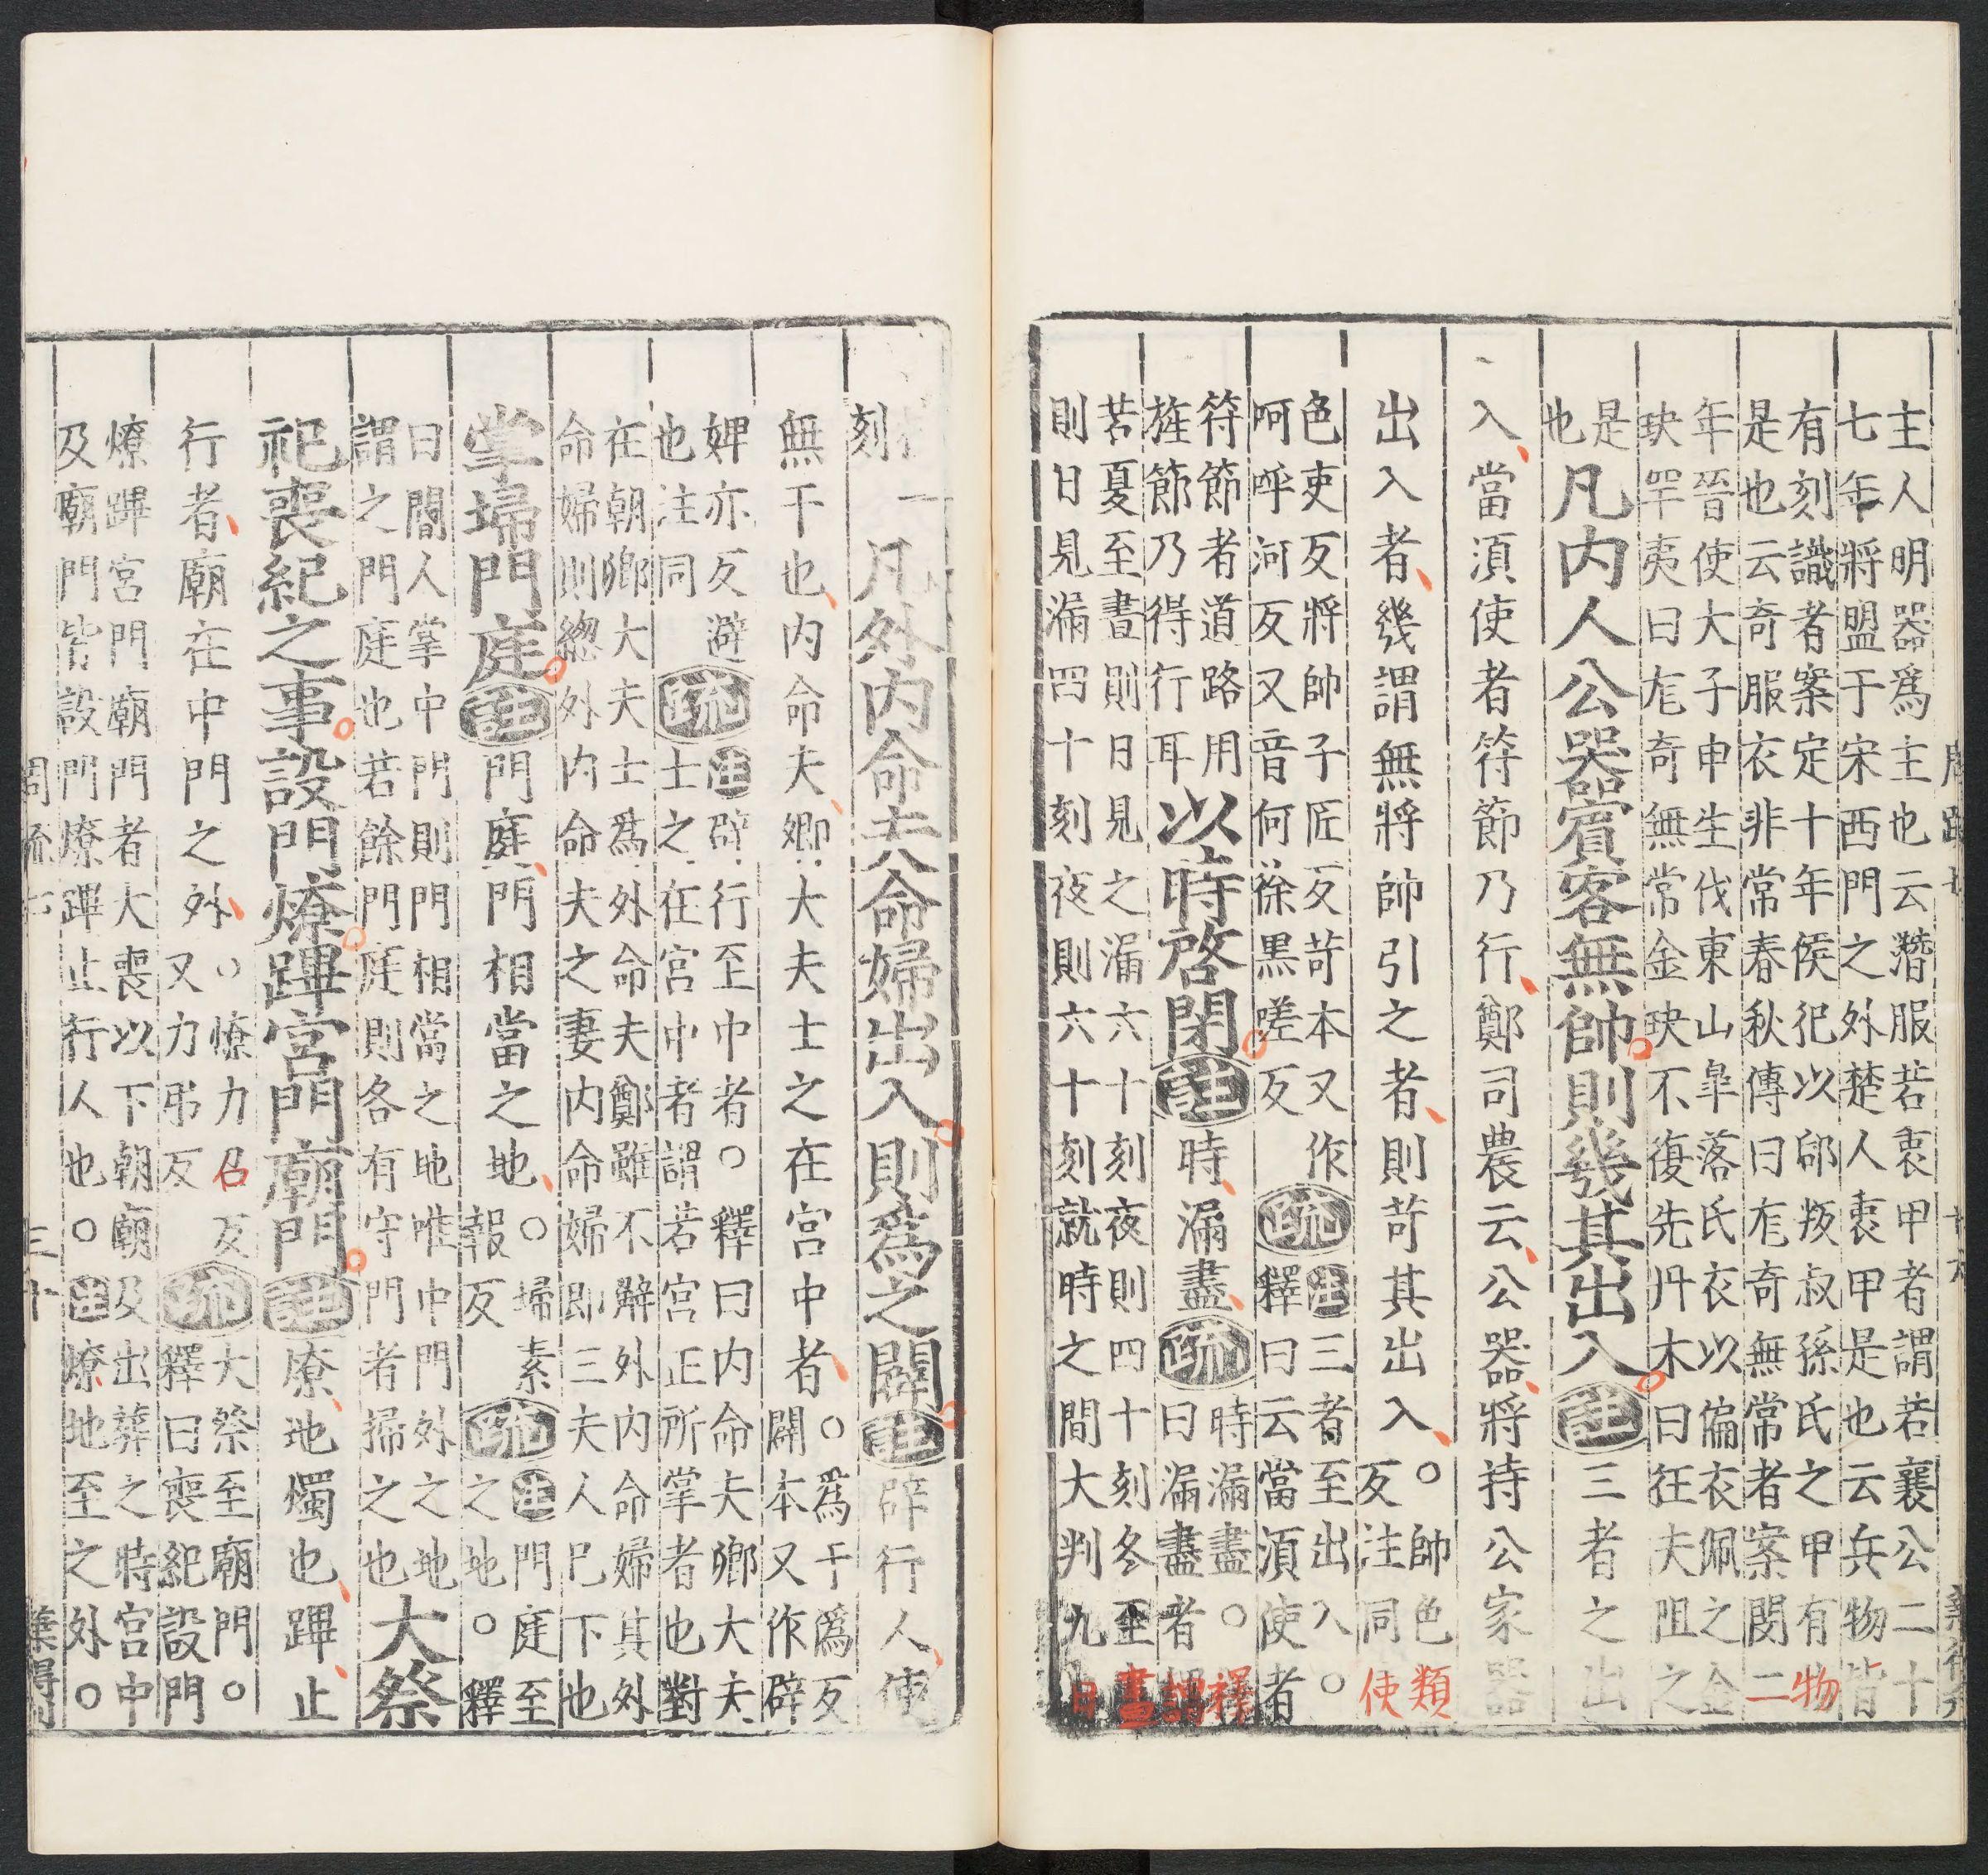 主人明器爲主也云潛服若衷甲者謂若襄公二十
七年將盟于宋西門之外楚人衷甲是也云兵物皆
有刻識者案定十年侯犯以郈叛叔孫氏之甲有物
是也云奇服衣非常春秋傳曰尨奇無常者案閔二
年晉使大子申生伐東山臯落氏衣以偏衣佩之金
玦罕夷曰尨奇無常金玦不復先丹木曰狂夫阻之
是
也
凡内人公器賓客無帥則幾其出入注三者之出
入當須使者符節乃行鄭司農云公器將持公家器
出入者幾謂無將帥引之者則苛其出入○帥色類
反注同使
色吏反將帥子匠反苛本又作
呵呼河反又音何徐黑嗟反
疏注三者至出入○
釋曰云當須使者
符節者道路用
旌節乃得行耳
以時啓閉注時漏盡疏時漏盡○釋
曰漏盡者謂
若夏至晝則日見之漏六十刻夜則四十刻冬至晝
則日見漏四十刻夜則六十刻就時之間大判九日
一
刻
凡外内命夫命婦出入則爲之闢注辟行人使
無干也内命夫卿大夫士之在宮中者○爲于爲反
闢本又作辟
婢亦反避
也注同
疏注辟行至中者○釋曰内命夫卿大夫
士之在宮中者謂若宮正所掌者也對
在朝卿大夫士爲外命夫鄭雖不解外内命婦其外
命婦則總外内命夫之妻内命婦即三夫人已下也
掌埽門庭注門庭門相當之地○埽素
報反
疏注門庭至
之地○釋
曰閽人掌中門則門相當之地唯中門外之地
謂之門庭也若餘門門庭則各有守門者掃之也
大祭
祀喪紀之事設門燎蹕宮門廟門注燎地燭也蹕止
行者廟在中門之外○燎力召反
又力弔反
疏大祭至廟門○
釋曰喪紀設門
燎蹕宮門廟門者大喪以下朝廟及出葬之時宮中
及廟門皆設門燎蹕止行人也○注燎地至之外○
周疏七
三十
葉得